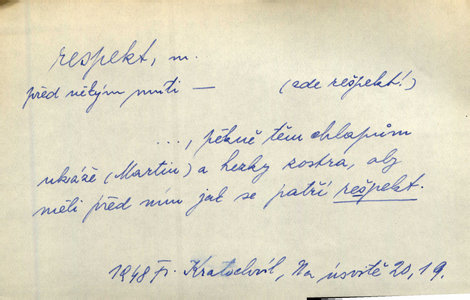 respekt, m.
před někým míti — (zde rešpekt!)
..., pěkně těm chlapům
ukáže (Martin) a hezky zostra, aby
měli před ním jak se patří rešpekt.
1948 Kratochvíl, Na úsvitě 20, 19.